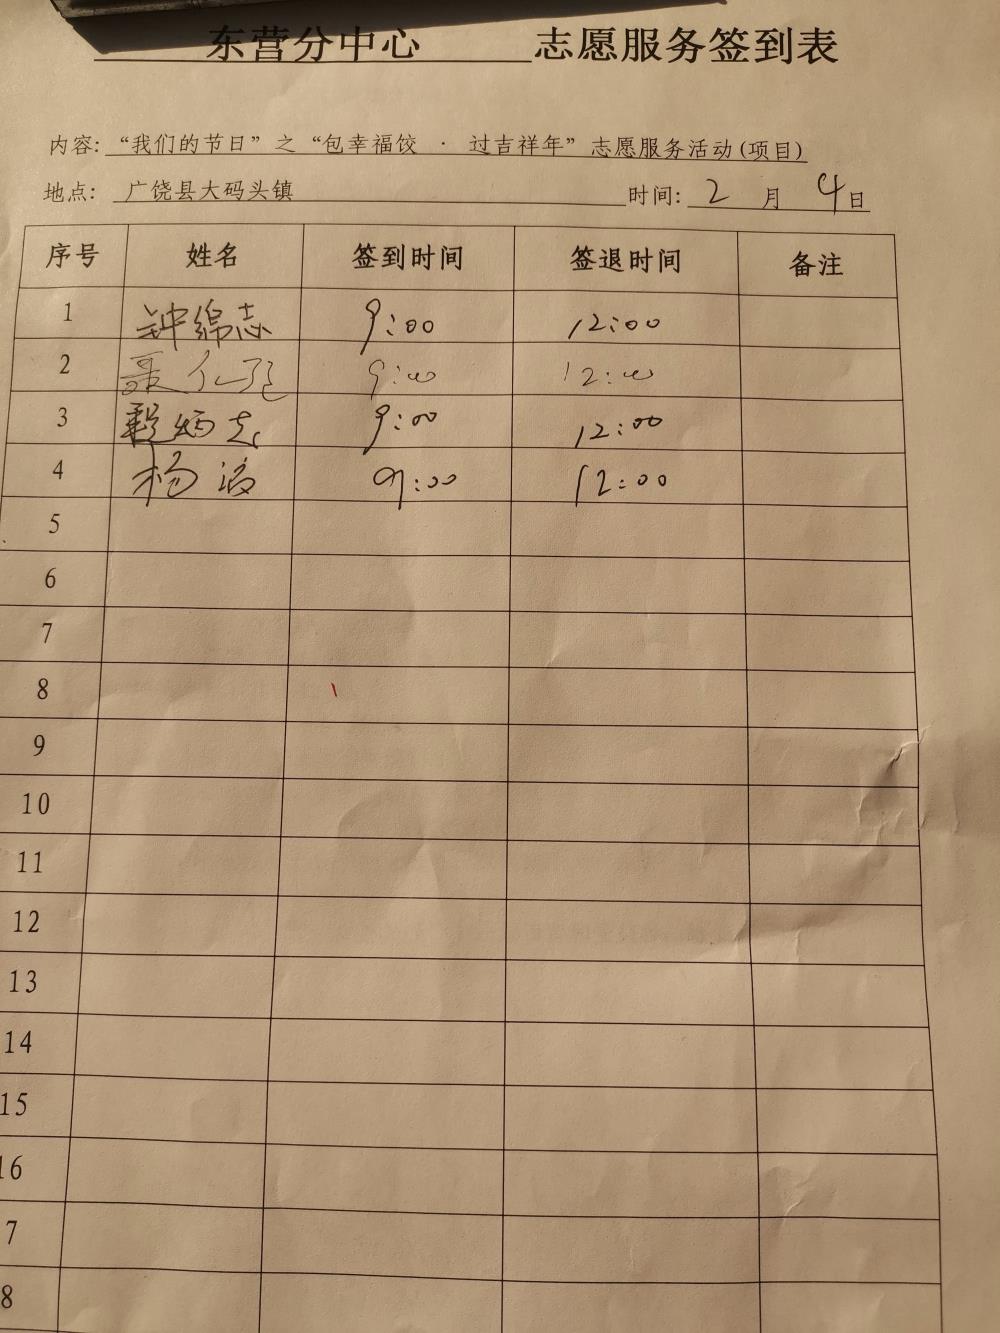 东营分中心 志愿服务签到表
内容: “我们的节日”之“包幸福饺 · 过吉祥年”志愿服务活动(项目)
地点: 广饶县大码头镇 时间: 2 月 4日
序号 姓名 签到时间 签退时间 备注
1 钟绵志 9:00 12:00
2 9:00 12:00
3 9:00 12:00
4 杨波 9:00 12:00
5
6
7
8
9
10
11
12
13
14
15
16
7
8